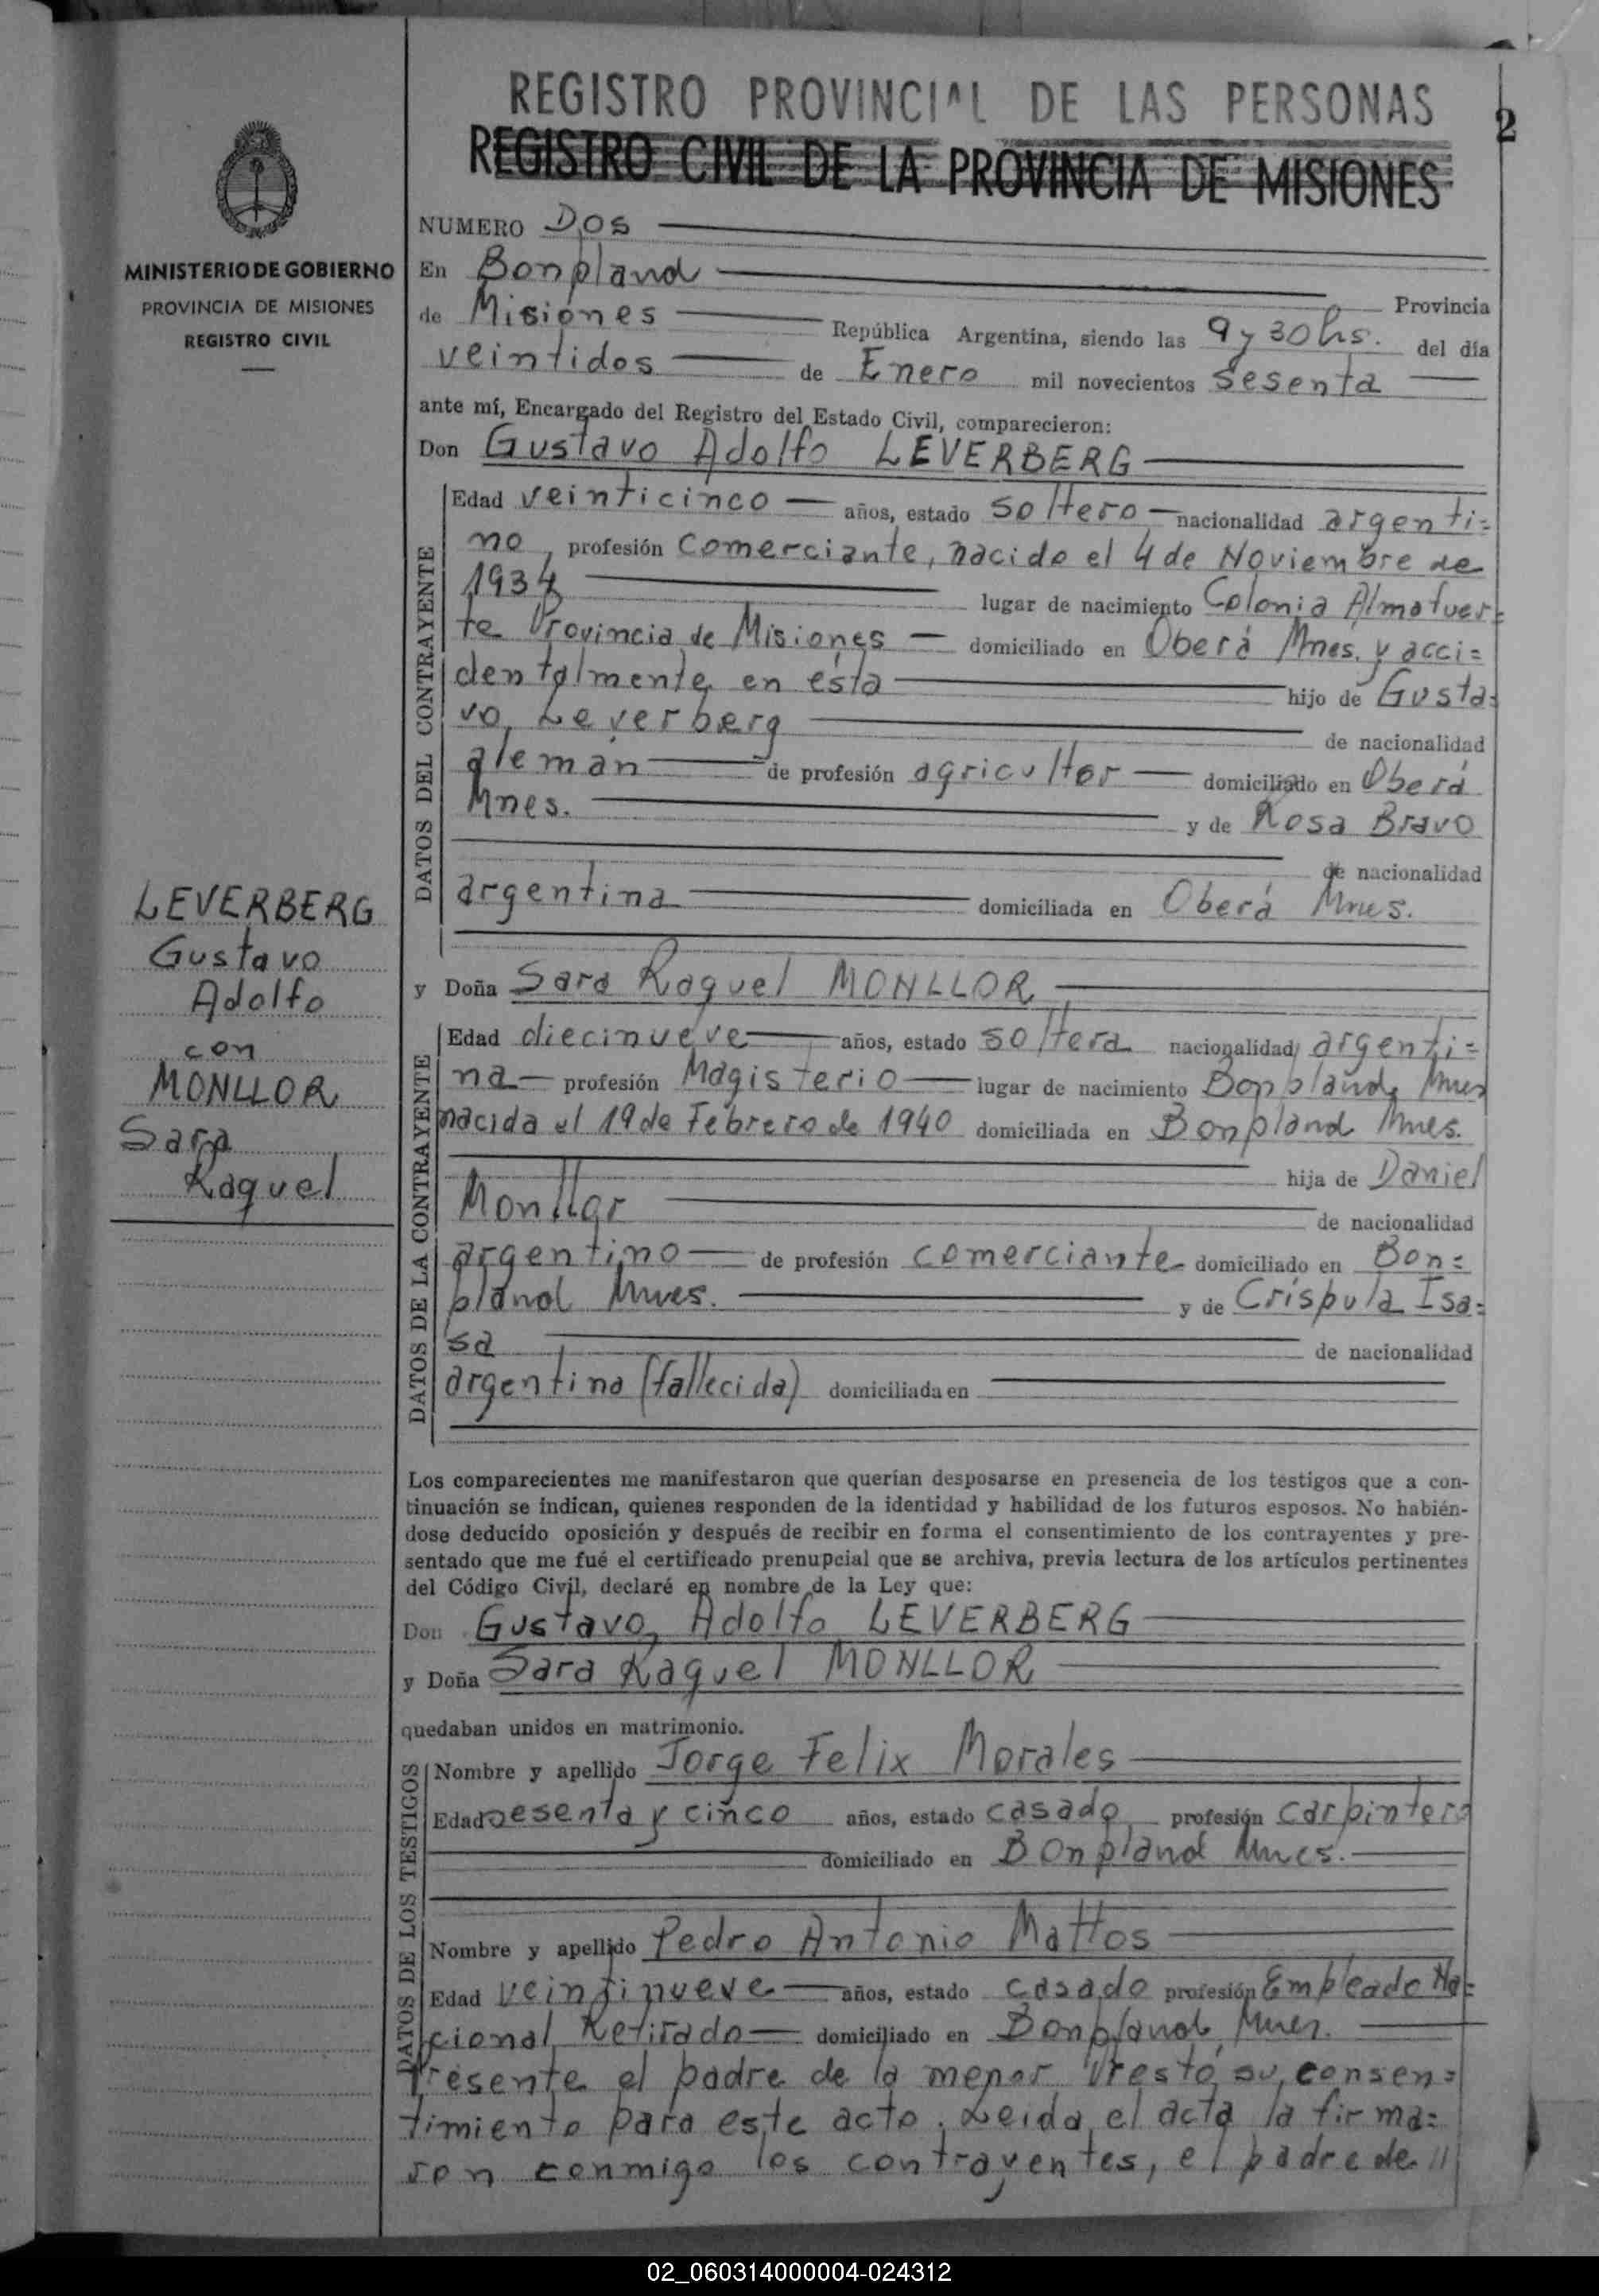 REGISTRO PROVINCIAL DE LAS PERSONAS
2
REGISTRO CIVIL DE LA PROVINCIA DE MISIONES
MINISTERIO DE GOBIERNO
PROVINCIA DE MISIONES
REGISTRO CIVIL
NUMERO Dos
En Bonpland Provincia
de Misiones República Argentina, siendo las 9 y 30 hs. del día
veintidos de Enero mil novecientos sesenta
ante mí, Encargado del Registro del Estado Civil, comparecieron:
Don Gustavo Adolfo LEVERBERG
DATOS DEL CONTRAYENTE
Edad veinticinco años, estado soltero nacionalidad argenti=
no, profesión comerciante, nacido el 4 de Noviembre de
1934 lugar de nacimiento Colonia Almafuer=
te Provincia de Misiones domiciliado en Oberá Mnes. y acci=
dentalmente en ésta hijo de Gusta=
vo Leverberg de nacionalidad
alemán de profesión agricultor domiciliado en Oberá
Mnes. y de Rosa Bravo
de nacionalidad
argentina domiciliada en Oberá Mnes.
LEVERBERG
Gustavo
Adolfo
con
MONLLOR
Sara
Raquel
y Doña Sara Raquel MONLLOR
DATOS DE LA CONTRAYENTE
Edad diecinueve años, estado soltera nacionalidad argenti=
na profesión Magisterio lugar de nacimiento Bonpland, Mnes
nacida el 19 de Febrero de 1940 domiciliada en Bonpland Mnes.
hija de Daniel
Monllor de nacionalidad
argentino de profesión comerciante domiciliado en Bon=
pland Mnes. y de Críspula Isa=
sa de nacionalidad
argentina (fallecida) domiciliada en
Los comparecientes me manifestaron que querían desposarse en presencia de los testigos que a con-
tinuación se indican, quienes responden de la identidad y habilidad de los futuros esposos. No habién-
dose deducido oposición y después de recibir en forma el consentimiento de los contrayentes y pre-
sentado que me fué el certificado prenupcial que se archiva, previa lectura de los artículos pertinentes
del Código Civil, declaré en nombre de la Ley que:
Don Gustavo Adolfo LEVERBERG
y Doña Sara Raquel MONLLOR
quedaban unidos en matrimonio.
DATOS DE LOS TESTIGOS
Nombre y apellido Jorge Felix Morales
Edad sesenta y cinco años, estado casado profesión carpintero
domiciliado en Bonpland Mnes.
Nombre y apellido Pedro Antonio Mattos
Edad veintinueve años, estado casado profesión Empleado Na=
cional Retirado domiciliado en Bonpland, Mnes.
Presente el padre de la menor Prestó su consen=
timiento para este acto. Leida el acta la firma=
ron conmigo los contrayentes, el padre de //
02_060314000004-024312